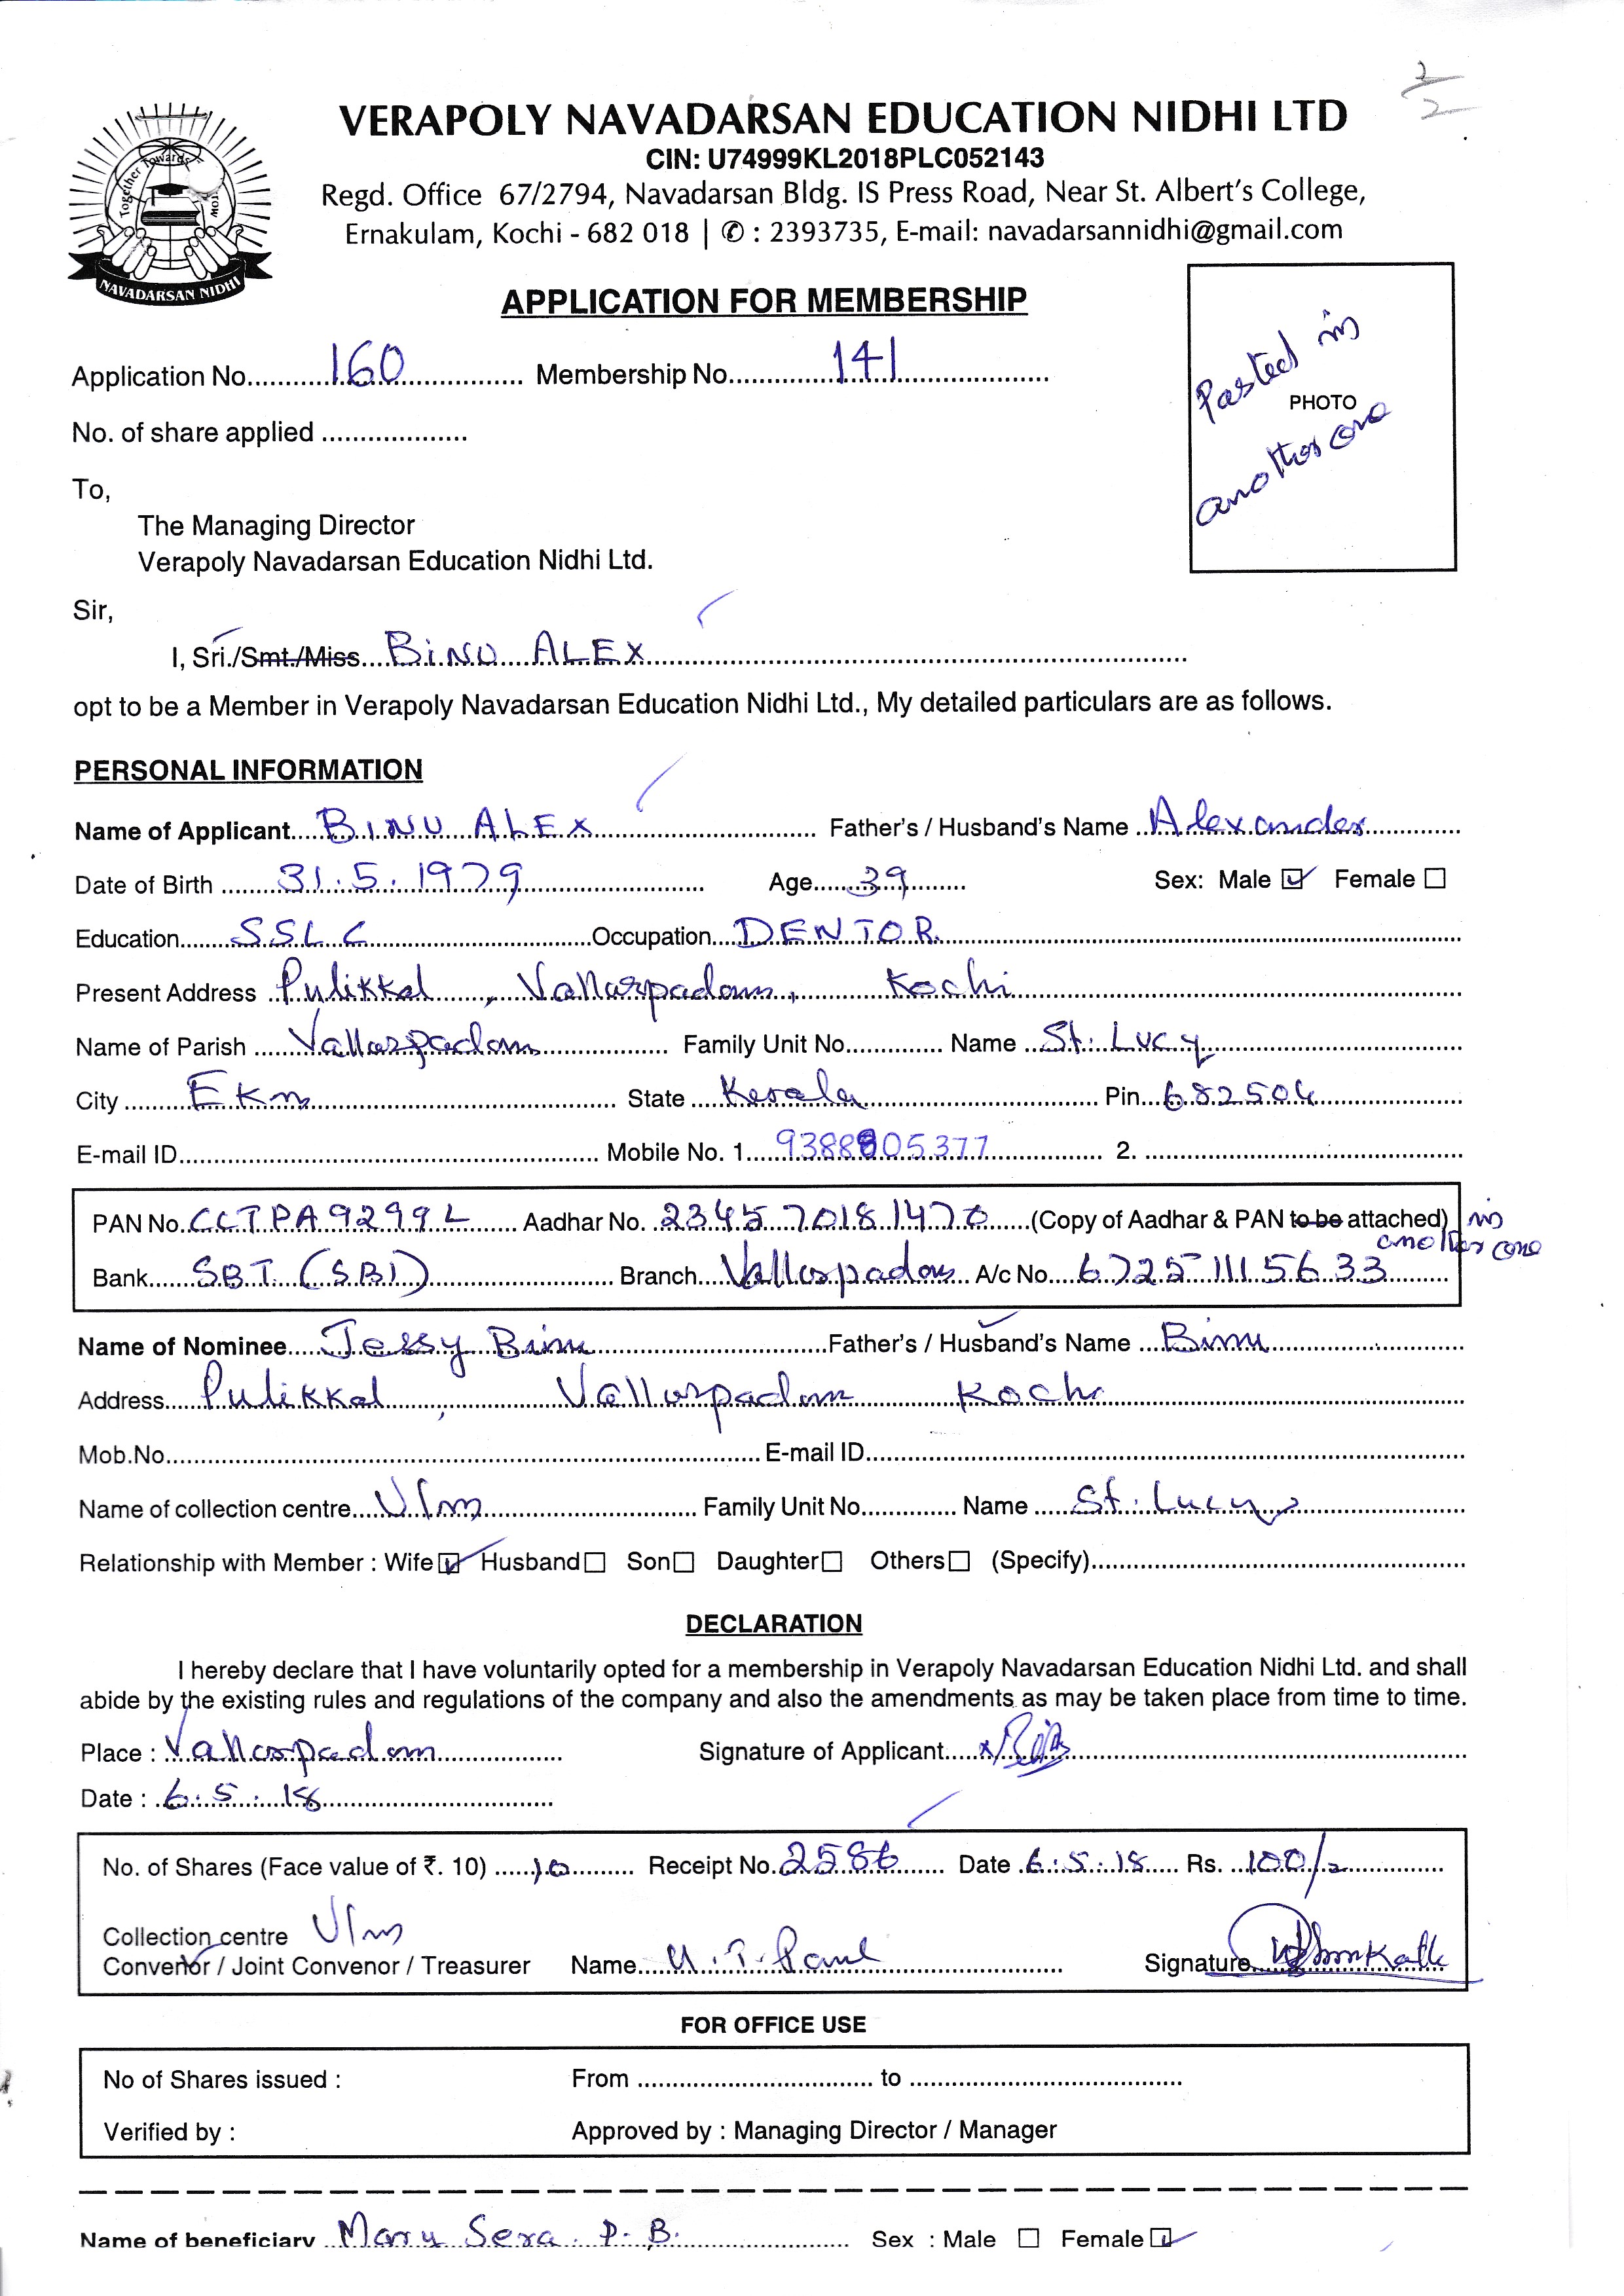 2/2
VERAPOLY NAVADARSAN EDUCATION NIDHI LTD
CIN: U74999KL2018PLC052143
Regd. Office 67/2794, Navadarsan Bldg. IS Press Road, Near St. Albert's College,
Ernakulam, Kochi - 682 018 | ✆ : 2393735, E-mail: navadarsannidhi@gmail.com
Together Towards
NAVADARSAN NIDHI
APPLICATION FOR MEMBERSHIP
Pasted in
PHOTO
another one
Application No. 160 Membership No. 141
No. of share applied
To,
The Managing Director
Verapoly Navadarsan Education Nidhi Ltd.
Sir,
I, Sri./Smt./Miss BINU ALEX
opt to be a Member in Verapoly Navadarsan Education Nidhi Ltd., My detailed particulars are as follows.
PERSONAL INFORMATION
Name of Applicant BINU ALEX Father's / Husband's Name Alexander
Date of Birth 31.5.1979 Age 39 Sex: Male ☑ Female ☐
Education SSLC Occupation DENTOR
Present Address Pulikkal, Vallarpadam, Kochi
Name of Parish Vallarpadam Family Unit No. Name St. Lucy
City Ekm State Kerala Pin 682504
E-mail ID Mobile No. 1. 9388805377 2.
PAN No. CCTPA9299L Aadhar No. 2345 7018 1470 (Copy of Aadhar & PAN to be attached) in another one
Bank SBT (SBI) Branch Vallarpadam A/c No. 67251115633
Name of Nominee Jessy Binu Father's / Husband's Name Binu
Address Pulikkal, Vallarpadam Kochi
Mob.No. E-mail ID
Name of collection centre Vlm Family Unit No. Name St. Lucy
Relationship with Member : Wife ☑ Husband ☐ Son ☐ Daughter ☐ Others ☐ (Specify)
DECLARATION
I hereby declare that I have voluntarily opted for a membership in Verapoly Navadarsan Education Nidhi Ltd. and shall
abide by the existing rules and regulations of the company and also the amendments as may be taken place from time to time.
Place : Vallarpadam Signature of Applicant
Date : 6.5.18
No. of Shares (Face value of ₹. 10) 10 Receipt No. 2586 Date 6.5.18 Rs. 100/-
Collection centre Vlm
Convenor / Joint Convenor / Treasurer Name Paul Signature
FOR OFFICE USE
No of Shares issued : From to
Verified by : Approved by : Managing Director / Manager
Name of beneficiary Mary Sera. P. B. Sex : Male ☐ Female ☑